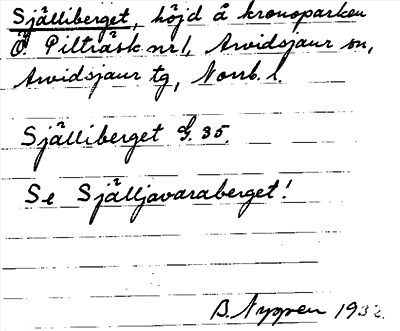 Själliberget, höjd å kronoparken
Ö. Pilträsk nr 1, Arvidsjaur sn,
Arvidsjaur tg, Norrb. l.
Själliberget G. 35.
Se Själljavaraberget!
B. Nygren 1932.